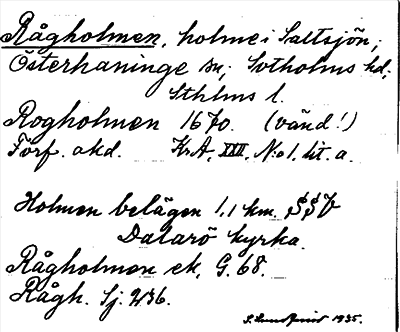 Rågholmen, holme i Saltsjön,
Österhaninge sn, Sotholms hd,
Sthlms l.
Rogholmen 1670. (vänd!)
Förf. akd. KrA, XIII, N:o 1. lit. a.
Holmen belägen 1,1 km. SSV
Dalarö kyrka.
Rågholmen ek, G. 68.
Rågh. Sj. 236.
S. Lundqvist 1935.